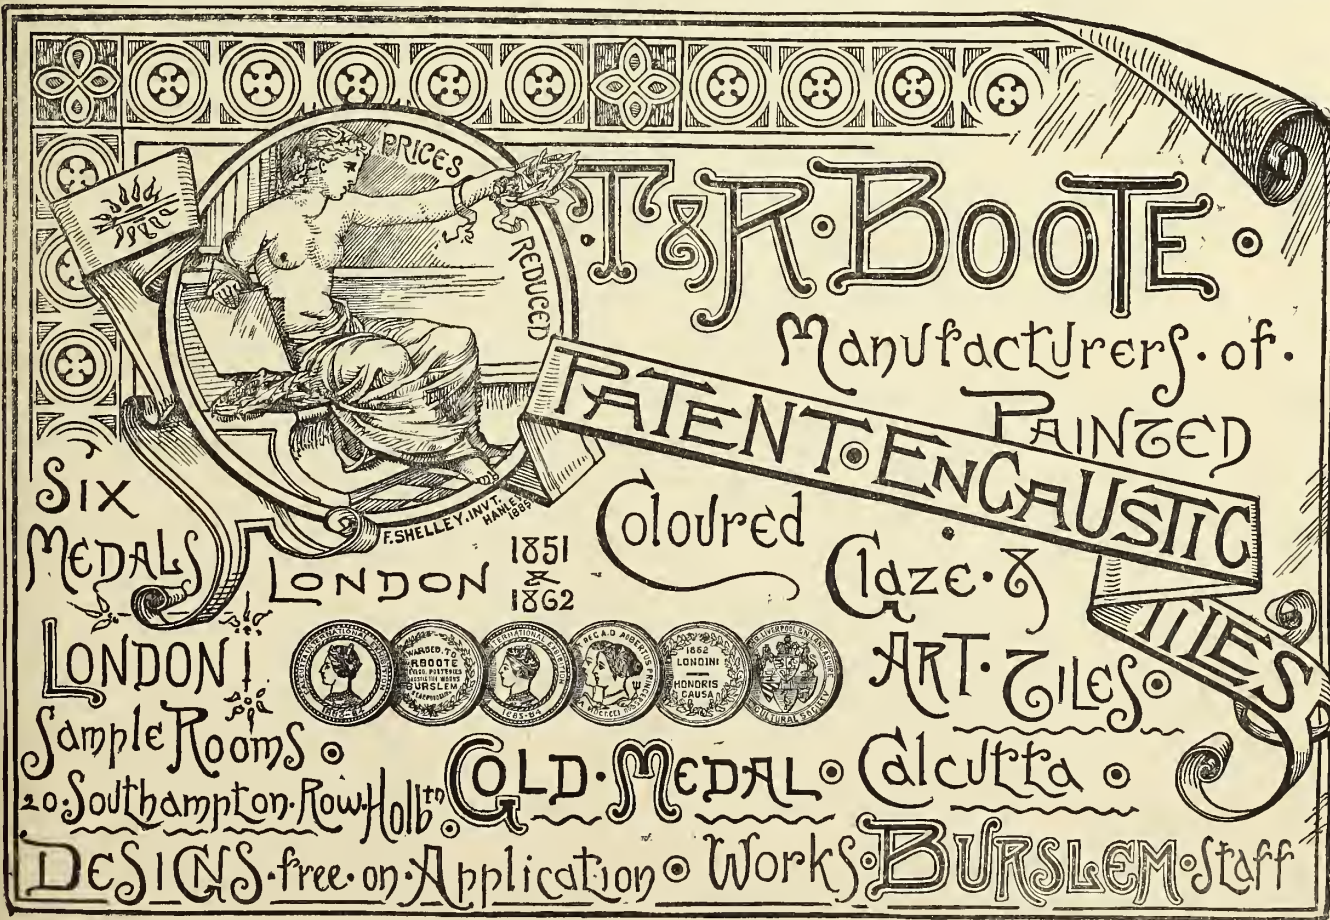 PRICES
REDUCED
T & R. BOOTE.
Manufacturers. of.
PAINTED
PATENT. ENCAUSTIC
TILES
Coloured
Glaze. &
ART. TILES.
F. SHELLEY. INVT.
HANLEY
1885
SIX
MEDALS
LONDON 1851
&
1862
INTERNATIONAL
1883-84
AWARDED. TO
RBOOTE
BURSLEM
INTERNATIONAL
1883-84
1862
LONDINI
HONORIS
CAUSA
LONDON
Sample Rooms.
20. Southampton. Row. Holbrn.
GOLD. MEDAL. Calcutta.
DESIGNS. free. on. Application. Works. BURSLEM. Staff